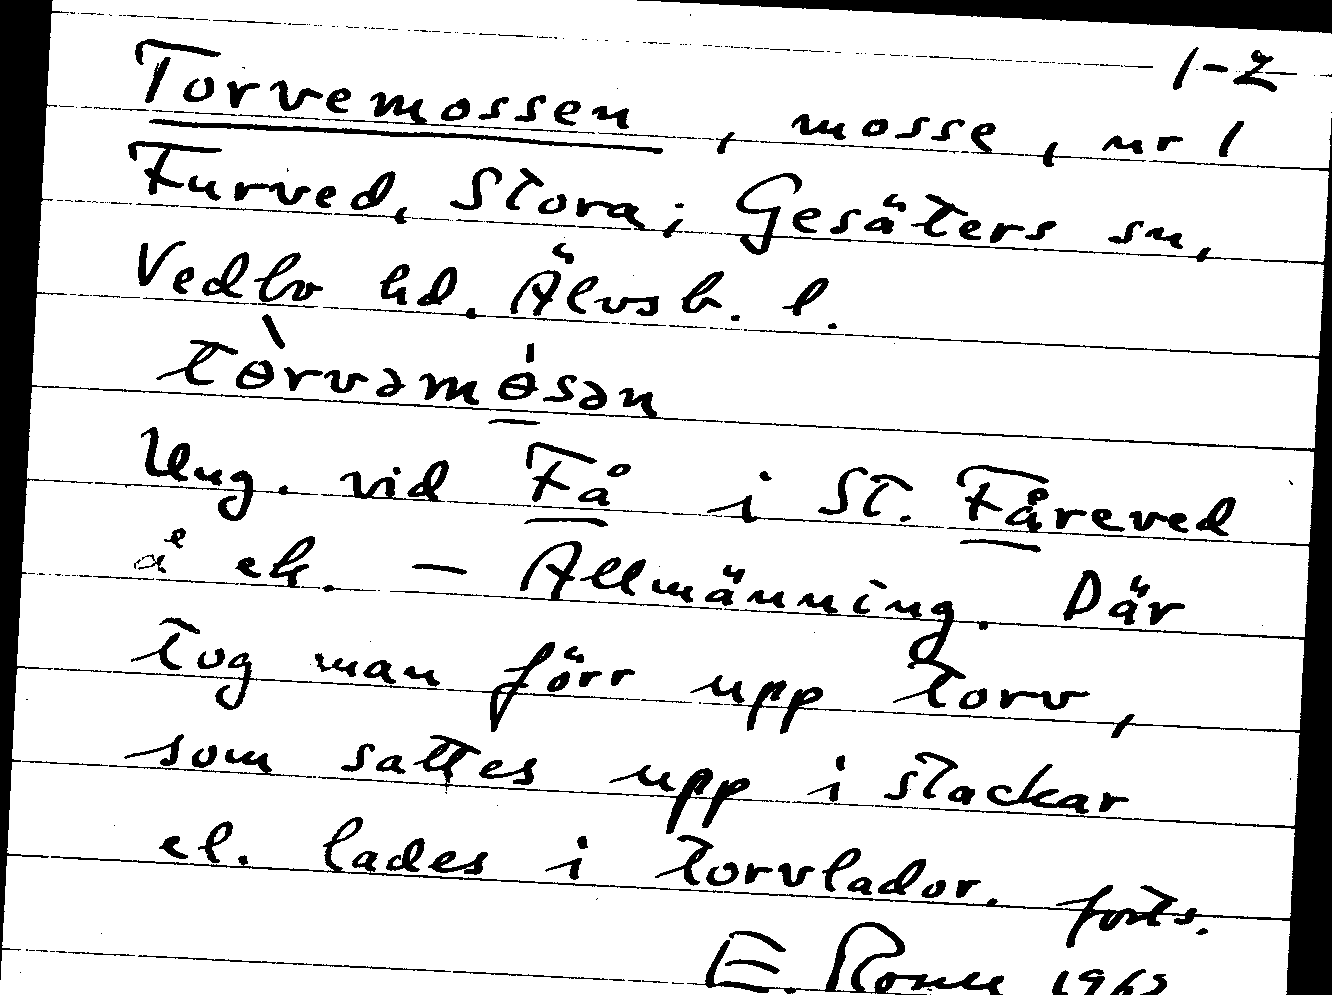 1-2
Torvemossen, mosse, nr 1
Furved, Stora; Gesäters sn,
Vedbo hd. Älvsb. l.
tɵ̀rvəmɵ̍sən
Ung. vid Få i St. Fåreved
å ek. – Allmänning. Där
tog man förr upp torv,
som sattes upp i stackar
el. lades i torvlador. forts.
E.